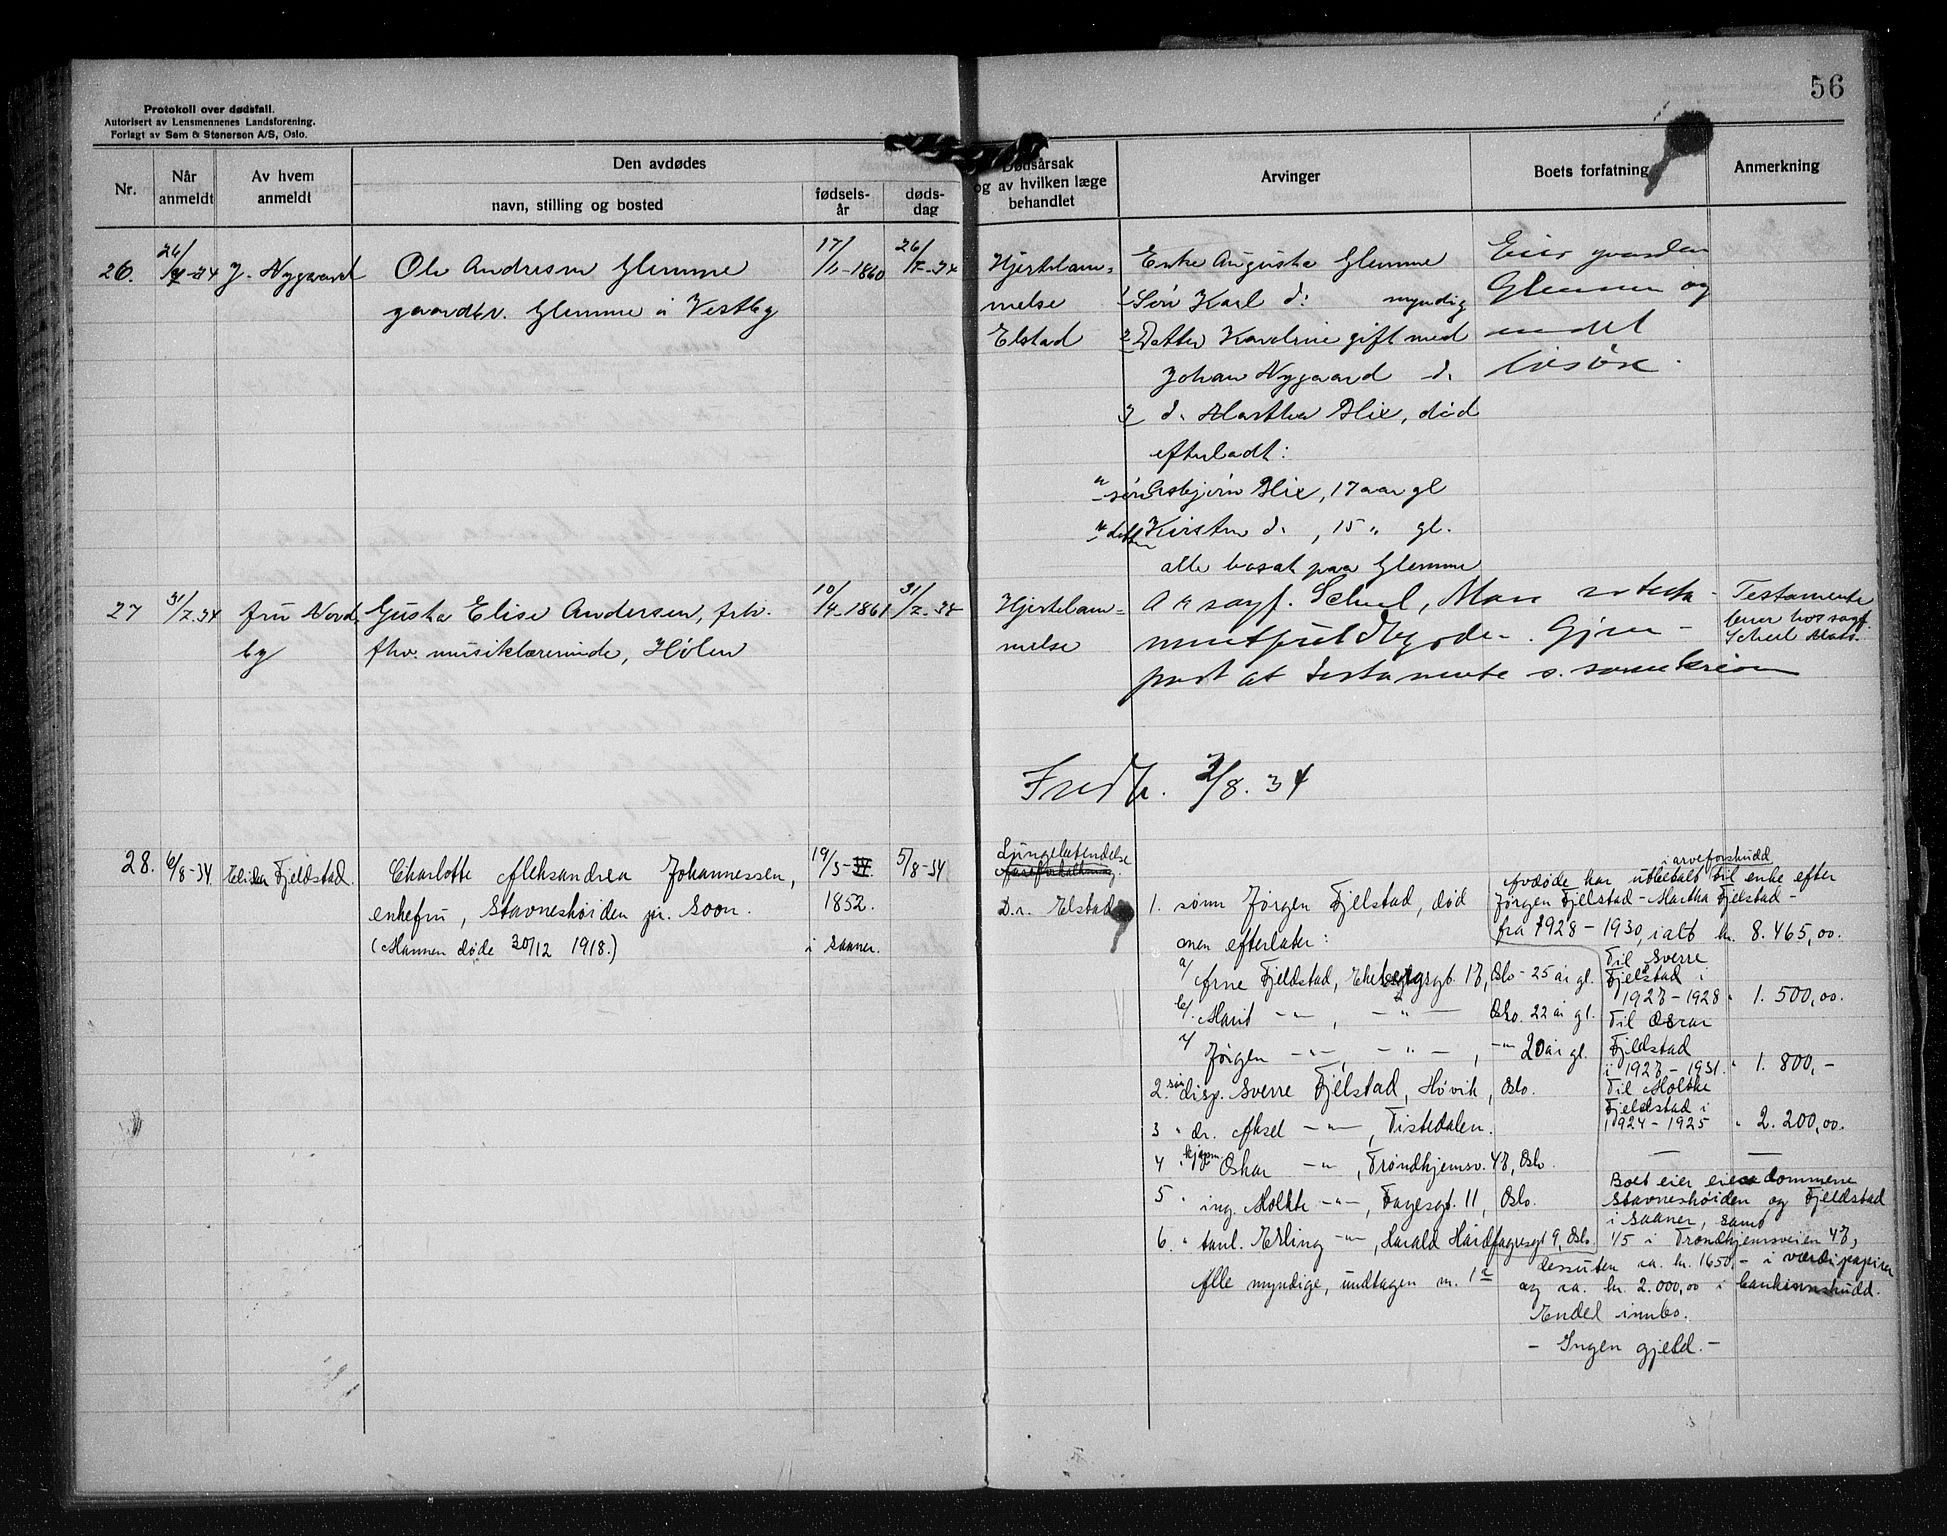 56
Protokoll over dødsfall.
Autorisert av Lensmennenes Landsforening.
Forlagt av Sem & Stenersen A/S, Oslo.
Nr.
Når anmeldt
Av hvem anmeldt
Den avdødes
navn, stilling og bosted
fødsels-år
døds-dag
Dødsårsak
og av hvilken læge
behandlet
Arvinger
Boets forfatning
Anmerkning
26. 26/7-34 J. Nygaard
Ole Andresen Glemme
gaardbr. Glemme i Vestby
17/11-1860 26/7-34
Hjertelam-
melse
Elstad
Enke Augusta Glemme
1 Søn Karl d: myndig
2 Datter Karoline gift med
Johan Nygaard d.
3 d. Martha Blix, død
efterladt:
a søn Asbjørn Blix, 17 aar gl
datter Kirsten d. , 15 " gl.
alle bosat paa Glemme
Eier gaarden
Glemme og
endel
løsøre.
27 31/7-34 fru Nord
by
Gusta Elise Andersen, frk.
fhv. musiklærerinde, Hølen
10/4-1861 31/7-34
Hjertelam-
melse
sagf. Scheel, Moss
part at testamente
Testamente
beror hos sagf.
Scheel Moss.
2/8. 34
28. 6/8-34 Fjeldstad.
Charlotte Aleksandrea Johannessen,
enkefru, Stavneshøiden pr. Soon.
(Mannen døde 30/12 1918.)
19/5-34.
1852.
i Saaner.
5/8-34
Lungebetendelse
Aareforkalkning.
D.r. Elstad
1. sønn Jørgen Fjelstad, død
men efterlater:
a/ Arne Fjeldstad, Ekebergsgt. 17, Oslo - 25 år gl.
b/. Marit -"- , -"- Oslo. 22 år gl.
c/ Jørgen -"-, -"- , -"- 20 år gl.
2. søn disp. Sverre Fjelstad, Høvik, Oslo.
3 " dr. Aksel -"-, Tistedalen.
4 " kjøpm. Oskar -"-, Trondhjemsv. 47, Oslo.
5 " ing. Moltke -"-, Fagesgt. 11, Oslo.
6. " tanl. Erling -"-, Harald Hårdfagresgt 9, Oslo.
Alle myndige, undtagen nr. 1c
i arveforskudd
Avdøde har utbetalt til enke efter
Jørgen Fjelstad - Martha Fjelstad -
fra 1928 - 1930, ialt kr. 8.465,00.
Til Sverre
Fjelstad i
1927 - 1928 " 1.500,00.
Til Oscar
Fjeldstad
i 1927 - 1931. " 1.800,-
Til Moltke
Fjeldstad i
1924 - 1925 " 2.200,00.
— —
Boet eier eiendommene
Stavneshøiden og Fjeldstad
i Saaner, samt
1/5 i Trondhjemsveien 47,
dessuten ca. kr. 1650,- i værdipapirer
og ca. kr. 2.000,00 i bankinnskudd.
Endel innbo.
- Ingen gjeld. -